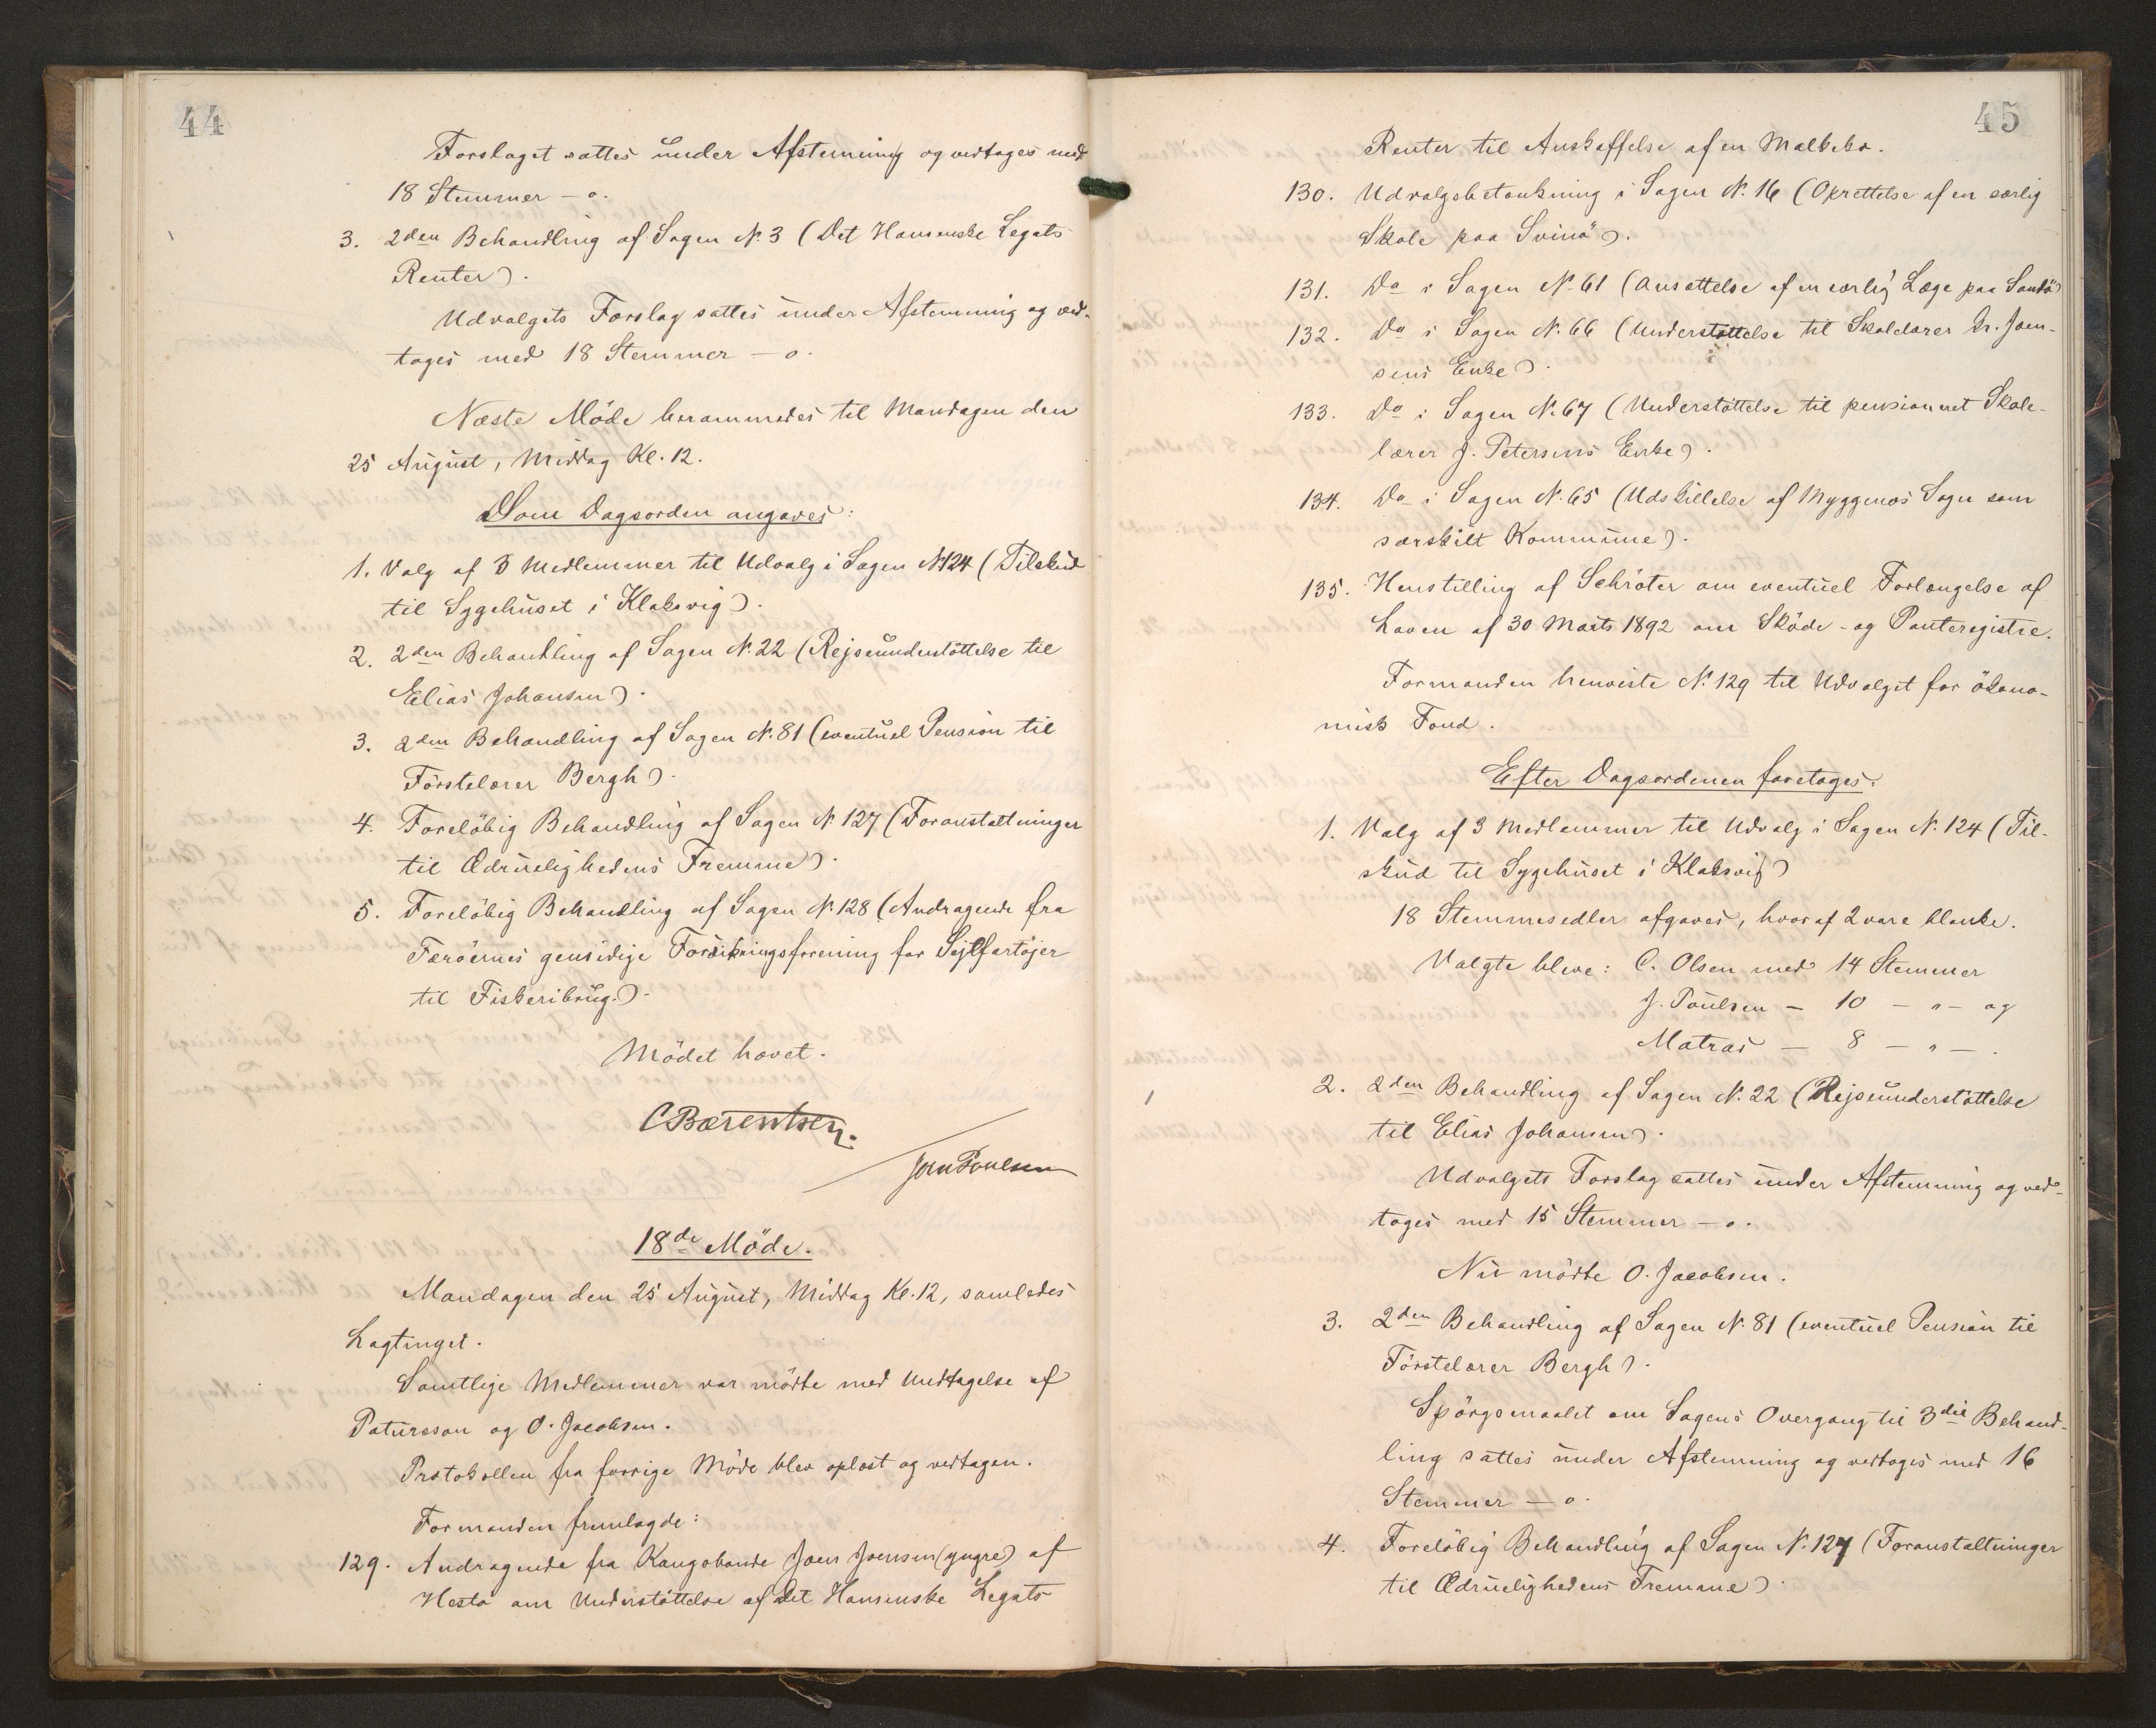 44
Forslaget sattes under Afstemning og vedtoges med
18 Stemmer – o.
3. 2den Behandling af Sagen N. 3 (Det Hansenske Legats
Renter).
Udvalgets Forslag sattes under Afstemning og ved-
toges med 18 Stemmer – o.
Næste Möde berammedes til Mandagen den
25 August, Middag Kl. 12.
Som Dagsorden angaves:
1. Valg af 3 Medlemmer til Udvalg i Sagen N 124 (Tilskud
til Sygehuset i Klaksvig).
2. 2den Behandling af Sagen N. 22 (Rejseunderstöttelse til
Elias Johansen).
3. 2den Behandling af Sagen N. 81 (eventuel Pension til
Förstelærer Bergh).
4. Forelöbig Behandling af Sagen N. 127 (Foranstaltninger
til Ædruelighedens Fremme).
5. Forelöbig Behandling af Sagen N. 128 (Andragende fra
Færöernes gensidige Forsikringsforening for Sejlfartöjer
til Fiskeribrug.).
Mödet hævet.
C Bærentsen.
Joen Poulsen
18de Möde.
Mandagen den 25 August, Middag Kl. 12, samledes
Lagtinget.
Samtlige Medlemmer var mödte med Undtagelse af
Patursson og O. Jacobsen.
Protokollen fra forrige Möde blev oplæst og vedtagen.
Formanden fremlagde:
129. Andragende fra Kongsbonde Joen Joensen (yngre) af
Hestö om Understöttelse af Det Hansenske Legats
45
Renter til Anskaffelse af en Malkeko.
130. Udvalgsbetænkning i Sagen N. 16 (Oprettelse af en særlig
Skole paa Svinö).
131. Do i Sagen N. 61 (Ansættelse af en særlig Læge paa Sandö)
132. Do i Sagen N. 66 (Understöttelse til Skolelærer Dr. Joen-
sens Enke).
133. Do i Sagen N. 67 (Understöttelse til pensioneret Skole-
lærer J. Petersens Enke).
134. Do i Sagen N. 65 (Udskillelse af Myggenæs Sogn som
særskilt Kommune).
135. Henstilling af Schröter om eventuel Forlængelse af
Loven af 30 Marts 1892 om Sköde- og Panteregistre.
Formanden henviste N. 129 til Udvalget for ökono-
misk Fond.
Efter Dagsordenen foretoges:
1. Valg af 3 Medlemmer til Udvalg i Sagen N. 124 (Til-
skud til Sygehuset i Klaksvig)
18 Stemmesedler afgaves, hvoraf 2 vare blanke.
Valgte bleve: C. Olsen med 14 Stemmer
J. Poulsen – 10 – " – og
Matras – 8 – " – .
2. 2den Behandling af Sagen N. 22 (Rejseunderstöttelse
til Elias Johansen).
Udvalgets Forslag sattes under Afstemning og ved-
toges med 15 Stemmer – o.
Nu mödte O. Jacobsen.
3. 2den Behandling af Sagen N. 81 (eventuel Pension til
Förstelærer Bergh).
Spörgsmaalet om Sagens Overgang til 3die Behand-
ling sattes under Afstemning og vedtoges med 16
Stemmer – o.
4. Forelöbig Behandling af Sagen N. 127 (Foranstaltninger
til Ædruelighedens Fremme).